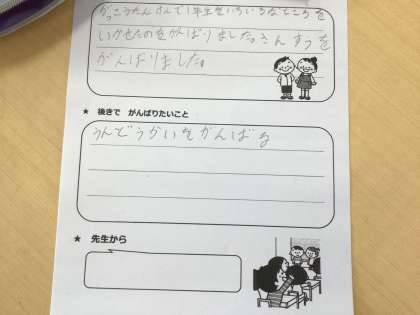 がっこうたんけんで1年生をいろいろなところを
いかせたのをがばりました。さんすうを
がんばりました。
★ 後きで がんばりたいこと
うんどうかいをがんばる
★ 先生から